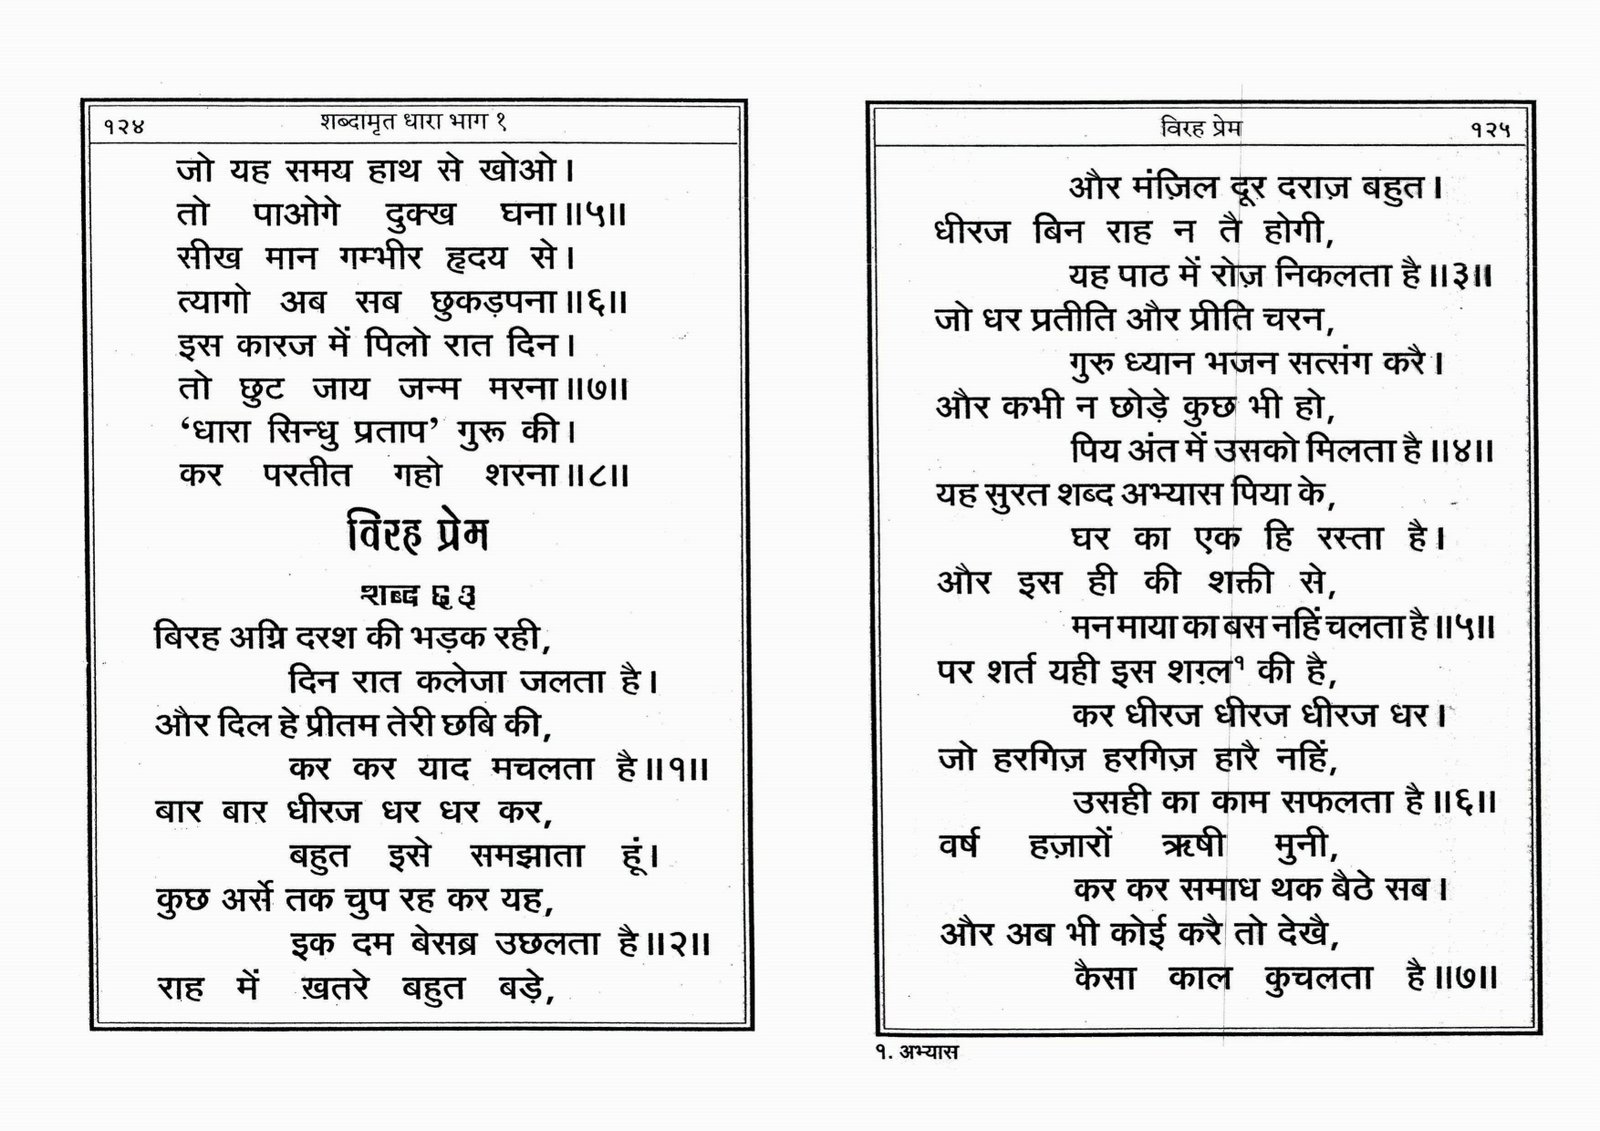 १२४
शब्दामृत धारा भाग १
जो यह समय हाथ से खोओ।
तो पाओगे दुक्ख घना॥५॥
सीख मान गम्भीर हृदय से।
त्यागो अब सब छुकड़पना॥६॥
इस कारज में पिलो रात दिन।
तो छुट जाय जन्म मरना॥७॥
‘धारा सिन्धु प्रताप’ गुरू की।
कर परतीत गहो शरना॥८॥
विरह प्रेम
शब्द ६३
बिरह अग्नि दरश की भड़क रही,
दिन रात कलेजा जलता है।
और दिल हे प्रीतम तेरी छबि की,
कर कर याद मचलता है॥१॥
बार बार धीरज धर धर कर,
बहुत इसे समझाता हूं।
कुछ अर्से तक चुप रह कर यह,
इक दम बेसब्र उछलता है॥२॥
राह में ख़तरे बहुत बड़े,
विरह प्रेम
१२५
और मंज़िल दूर दराज़ बहुत।
धीरज बिन राह न तै होगी,
यह पाठ में रोज़ निकलता है॥३॥
जो धर प्रतीति और प्रीति चरन,
गुरु ध्यान भजन सत्संग करै।
और कभी न छोड़े कुछ भी हो,
पिय अंत में उसको मिलता है॥४॥
यह सुरत शब्द अभ्यास पिया के,
घर का एक हि रस्ता है।
और इस ही की शक्ती से,
मन माया का बस नहिं चलता है॥५॥
पर शर्त यही इस शग़्ल१ की है,
कर धीरज धीरज धीरज धर।
जो हरगिज़ हरगिज़ हारै नहिं,
उसही का काम सफलता है॥६॥
वर्ष हज़ारों ऋषी मुनी,
कर कर समाध थक बैठे सब।
और अब भी कोई करै तो देखै,
कैसा काल कुचलता है॥७॥
१. अभ्यास